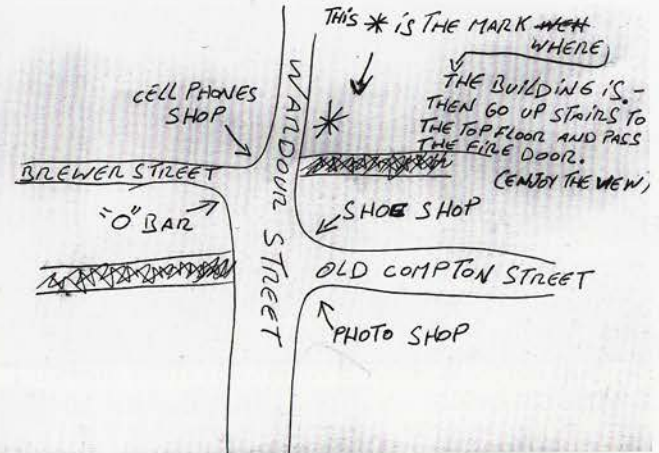 THIS * IS THE MARK
WHERE
THE BUILDING IS.-
THEN GO UP STAIRS TO
THE TOP FLOOR AND PASS
THE FIRE DOOR.
(ENJOY THE VIEW)
CELL PHONES
SHOP
WARDOUR STREET
BREWER STREET
"O" BAR
SHOE SHOP
OLD COMPTON STREET
PHOTO SHOP